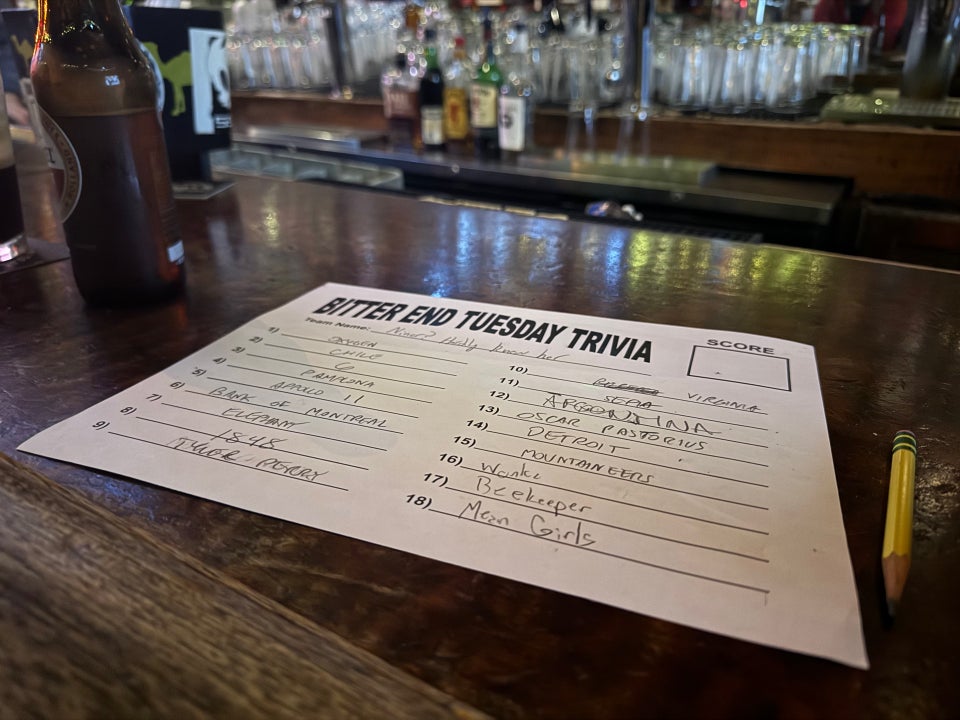 BITTER END TUESDAY TRIVIA
Team Name: Niner? Hardly know her
SCORE
1) OXYGEN
2) CHILE
3) 6
4) PAMPLONA
5) APPOLO 11
6) BANK OF MONTREAL
7) ELEPHANT
8) 1848
9) TYLER PERRY
10) VIRGINIA
11) SEPIA
12) ARGENTINA
13) OSCAR PASTORIUS
14) DETROIT
15) MOUNTAINEERS
16) Wonka
17) Beekeeper
18) Mean Girls